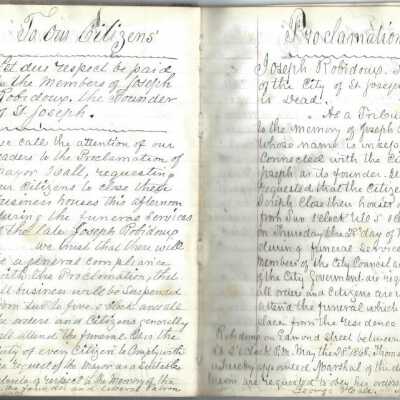 To our Citizens'
Let due respect be paid
the Members of Joseph
Robidoux, the Founder
of St Joseph.
We call the attention of our
readers to the Proclamation of
Mayor Hall, requesting
our citizens to close their
business houses this afternoon
during the funeral services
of the late Joseph Robidoux
we trust that there will
be a general compliance
with the Proclamation, that
all business will be suspended
from two to five o clock and all
the orders and Citizens generally
will attend the funeral. this the
duty of every Citizen to Comply with
the request of the Mayor as a suitable
of respect to the Memory of the
the founder and liberal Patron
Proclamation
Joseph Robidoux.
of the City of St Joseph
is Dead!
As a Tribut
to the memory of Joseph
whose name is insep
Connected with the Cit
Joseph as its founder
requested that the Citize
Joseph Close their houses
from two o'clock till 5 o'c
on Thursday the 28" day of
during funeral Service
Members of the City Council and
of the City Government are req
all orders and Citizens are
attend the funeral which
place from the residence
Robidoux on Edmond street between
at 2 o'clock P.M. May the 28" 1868. Thomas
is hereby appointed Marshal of the d
are requested to obey his orders
George Hall.